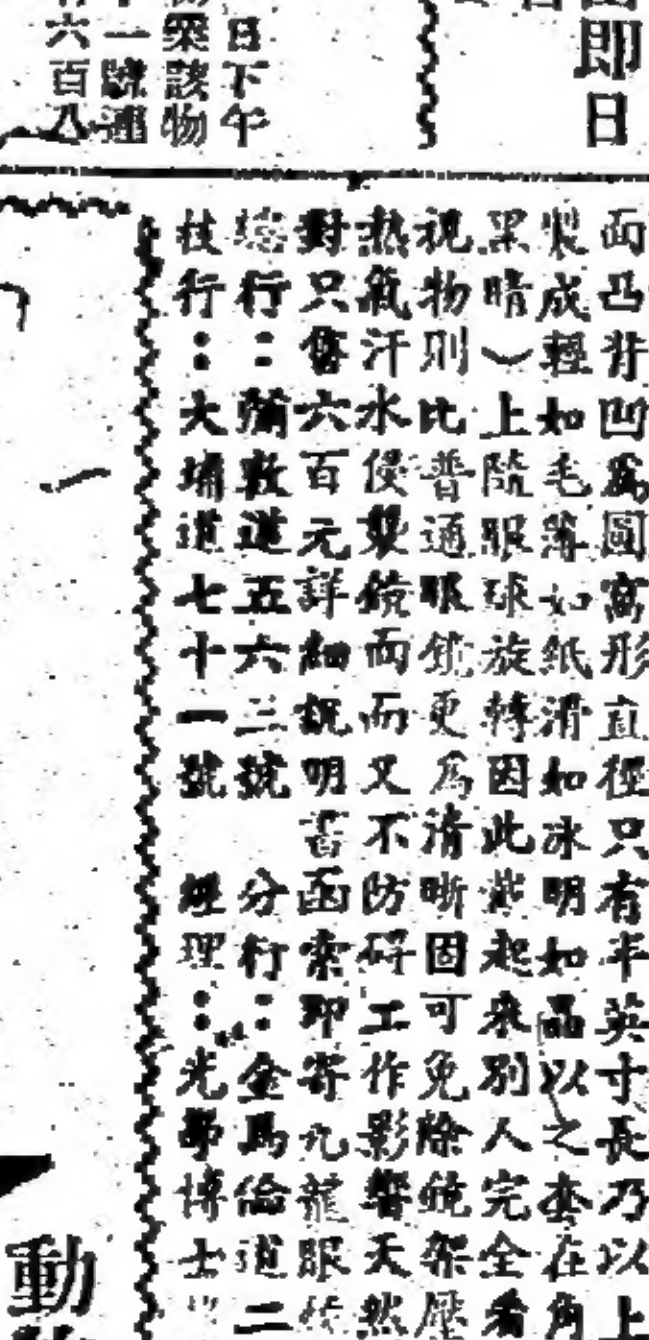 即日
日下午
該物
一號
六百八
面凸背凹為圓窩形直徑只有半英寸長乃以上
製成輕如毛薄如紙滑如冰明如晶以之套在角
黑睛）上隨眼球旋轉因此戴起來別人完全看
視物則比普通眼鏡更為清晰固可免除鏡架壓
熱氣汗水侵襲鏡面而又不防碍工作影響天然
對只售六百元詳細說明書函索即寄九龍眼
行：彌敦道五六三號　分行：金馬倫道二
枝行：大埔道七十一號　經理：光華博士
動